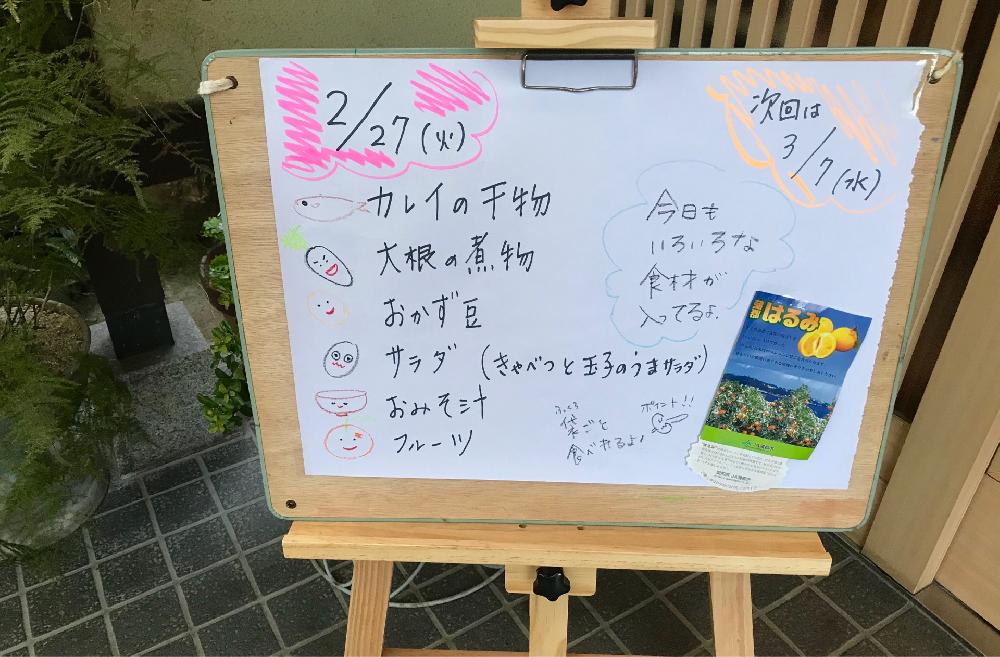 2/27(火)
次回は
3/7(水)
カレイの干物
大根の煮物
おかず豆
サラダ (きゃべつと玉子のうまサラダ)
おみそ汁
フルーツ
今日も
いろいろな
食材が
入ってるよ.
ふくろ
袋ごと
食べれるよ!
ポイント!!
はるみ